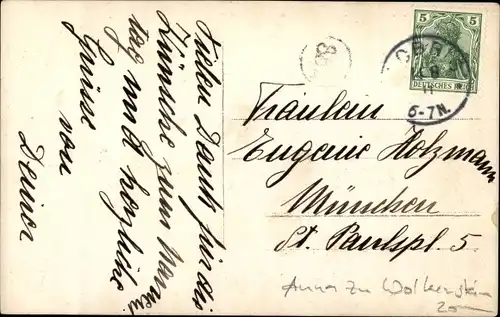 Vielen Dank für die
Wünsche zum Namens
tag und herzliche
Grüsse
von
Deiner
5 5
DEUTSCHES REICH
6-7N.
Fräulein
Eugenie Holzmann
München
St. Paulspl. 5
Anna zu Wolkenstein
20